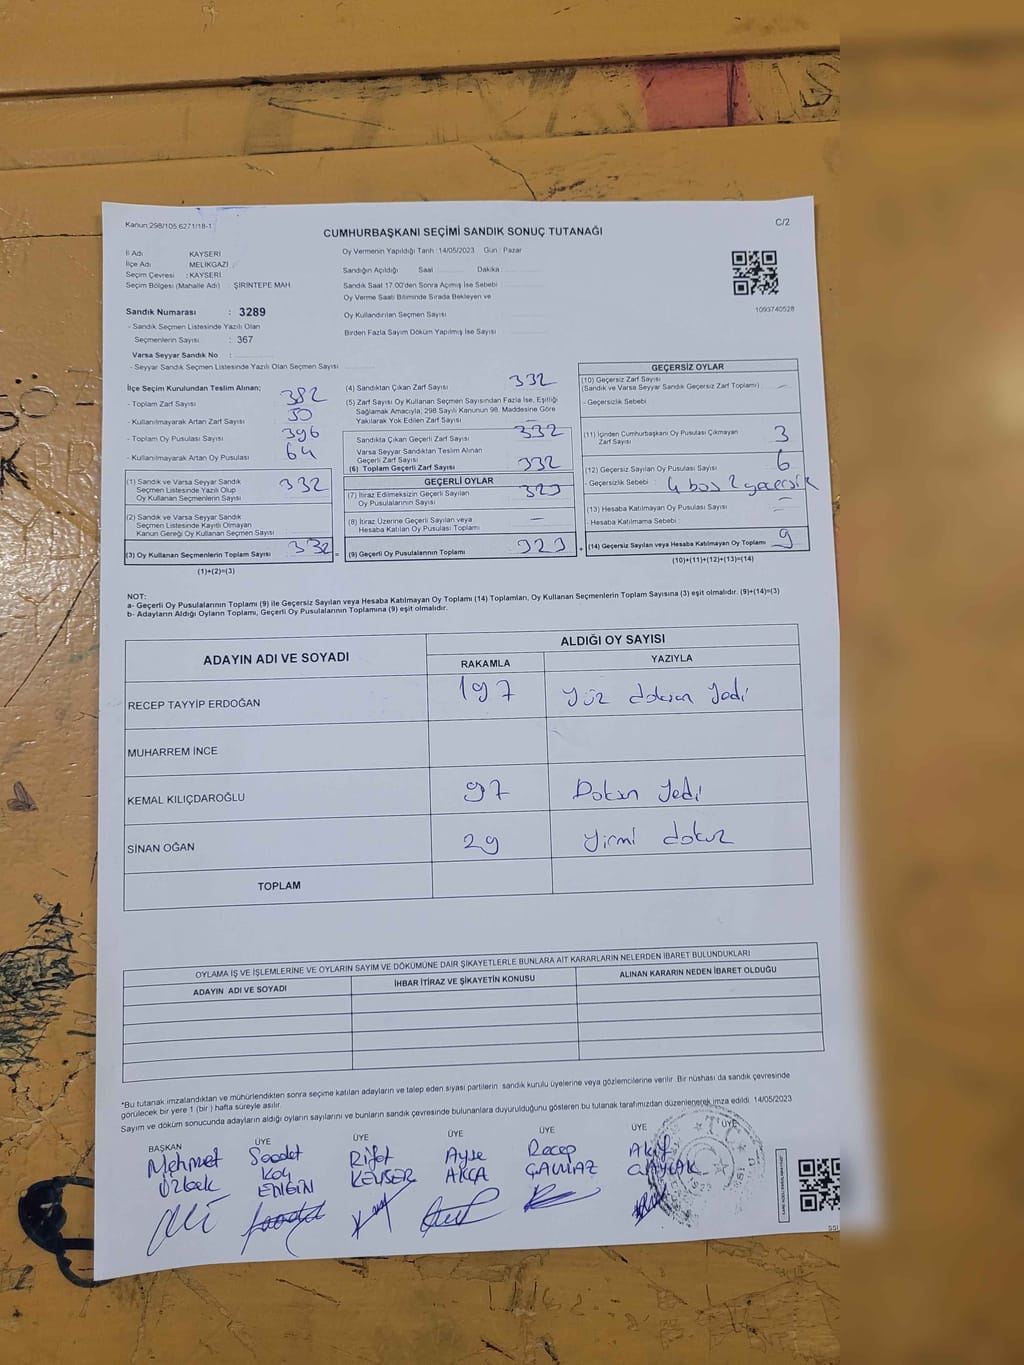 Kanun:298/105;6271/18-1
C/2
CUMHURBAŞKANI SEÇİMİ SANDIK SONUÇ TUTANAĞI
İl Adı KAYSERİ
İlçe Adı MELİKGAZİ
Seçim Çevresi : KAYSERİ
Seçim Bölgesi (Mahalle Adı) : ŞİRİNTEPE MAH.
Sandık Numarası : 3289
- Sandık Seçmen Listesinde Yazılı Olan
Seçmenlerin Sayısı : 367
Varsa Seyyar Sandık No :
- Seyyar Sandık Seçmen Listesinde Yazılı Olan Seçmen Sayısı
Oy Vermenin Yapıldığı Tarih : 14/05/2023 Gün : Pazar
Sandığın Açıldığı Saat Dakika
Sandık Saat 17.00'den Sonra Açılmış İse Sebebi
Oy Verme Saati Bitiminde Sırada Bekleyen ve
Oy Kullandırılan Seçmen Sayısı
Birden Fazla Sayım Döküm Yapılmış İse Sayısı
1093740528
İlçe Seçim Kurulundan Teslim Alınan;
- Toplam Zarf Sayısı : 382
- Kullanılmayarak Artan Zarf Sayısı : 50
- Toplam Oy Pusulası Sayısı : 396
- Kullanılmayarak Artan Oy Pusulası : 64
(1) Sandık ve Varsa Seyyar Sandık
Seçmen Listesinde Yazılı Olup
Oy Kullanan Seçmenlerin Sayısı : 332
(2) Sandık ve Varsa Seyyar Sandık
Seçmen Listesinde Kayıtlı Olmayan
Kanun Gereği Oy Kullanan Seçmen Sayısı
(3) Oy Kullanan Seçmenlerin Toplam Sayısı : 332 =
(1)+(2)=(3)
(4) Sandıktan Çıkan Zarf Sayısı 332
(5) Zarf Sayısı Oy Kullanan Seçmen Sayısından Fazla İse, Eşitliği
Sağlamak Amacıyla, 298 Sayılı Kanunun 98. Maddesine Göre
Yakılarak Yok Edilen Zarf Sayısı –
Sandıkta Çıkan Geçerli Zarf Sayısı 332
Varsa Seyyar Sandıktan Teslim Alınan
Geçerli Zarf Sayısı
(6) Toplam Geçerli Zarf Sayısı 332
GEÇERLİ OYLAR
(7) İtiraz Edilmeksizin Geçerli Sayılan
Oy Pusulalarının Sayısı 323
(8) İtiraz Üzerine Geçerli Sayılan veya
Hesaba Katılan Oy Pusulası Toplamı –
(9) Geçerli Oy Pusulalarının Toplamı 323 +
GEÇERSİZ OYLAR
(10) Geçersiz Zarf Sayısı
(Sandık ve Varsa Seyyar Sandık Geçersiz Zarf Toplamı) –
- Geçersizlik Sebebi :
(11) İçinden Cumhurbaşkanı Oy Pusulası Çıkmayan
Zarf Sayısı 3
(12) Geçersiz Sayılan Oy Pusulası Sayısı 6
- Geçersizlik Sebebi : 4 boş 2 geçersiz
(13) Hesaba Katılmayan Oy Pusulası Sayısı –
- Hesaba Katılmama Sebebi :
(14) Geçersiz Sayılan veya Hesaba Katılmayan Oy Toplamı 9
(10)+(11)+(12)+(13)=(14)
NOT:
a- Geçerli Oy Pusulalarının Toplamı (9) ile Geçersiz Sayılan veya Hesaba Katılmayan Oy Toplamı (14) Toplamları, Oy Kullanan Seçmenlerin Toplam Sayısına (3) eşit olmalıdır. (9)+(14)=(3)
b- Adayların Aldığı Oyların Toplamı, Geçerli Oy Pusulalarının Toplamına (9) eşit olmalıdır.
ADAYIN ADI VE SOYADI
ALDIĞI OY SAYISI
RAKAMLA YAZIYLA
RECEP TAYYİP ERDOĞAN 197 Yüz doksan Yedi
MUHARREM İNCE
KEMAL KILIÇDAROĞLU 97 Doksan Yedi
SİNAN OĞAN 29 Yirmi dokuz
TOPLAM
OYLAMA İŞ VE İŞLEMLERİNE VE OYLARIN SAYIM VE DÖKÜMÜNE DAİR ŞİKAYETLERLE BUNLARA AİT KARARLARIN NELERDEN İBARET BULUNDUKLARI
ADAYIN ADI VE SOYADI İHBAR İTİRAZ VE ŞİKAYETİN KONUSU ALINAN KARARIN NEDEN İBARET OLDUĞU
*Bu tutanak imzalandıktan ve mühürlendikten sonra seçime katılan adayların ve talep eden siyasi partilerin sandık kurulu üyelerine veya gözlemcilerine verilir. Bir nüshası da sandık çevresinde
görülecek bir yere 1 (bir) hafta süreyle asılır.
Sayım ve döküm sonucunda adayların aldığı oyların sayılarını ve bunların sandık çevresinde bulunanlara duyurulduğunu gösteren bu tutanak tarafımızdan düzenlenerek imza edildi. 14/05/2023
BAŞKAN ÜYE ÜYE ÜYE ÜYE ÜYE
Mehmet Saadet Rifat Ayşe Recep Akif
Özbek Koç KEVSER AKÇA
ENGİN